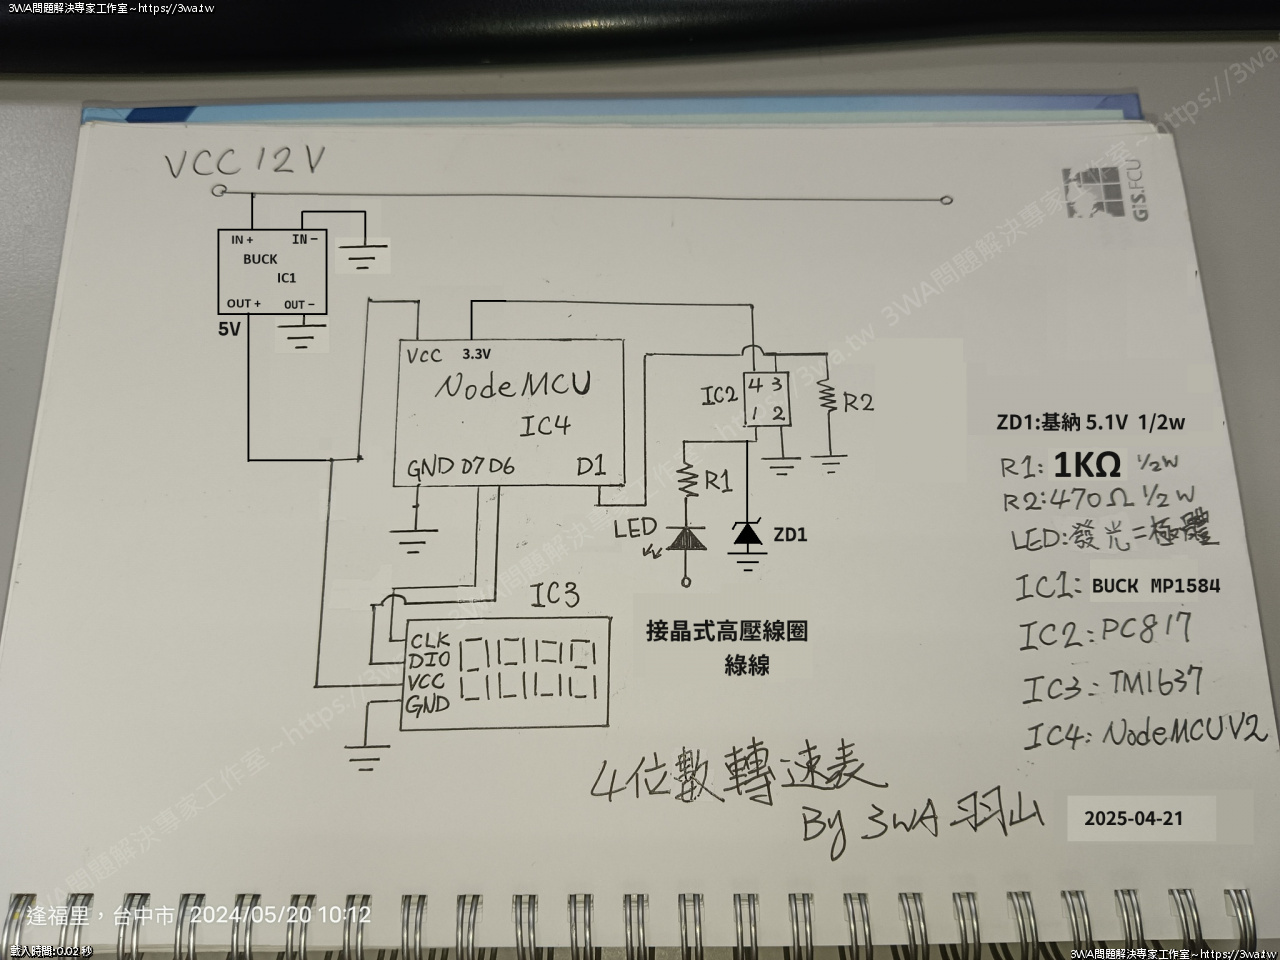 3WA問題解決專家工作室~https://3wa.tw
VCC 12V
GIS.FCU
IN + IN −
BUCK
IC1
OUT + OUT −
5V
VCC 3.3V
NodeMCU
IC4
GND D7 D6 D1
IC2
4 3
1 2
R2
R1
LED
ZD1
IC3
CLK
DIO
VCC
GND
接晶式高壓線圈
綠線
ZD1:基納 5.1V 1/2w
R1: 1KΩ 1/2W
R2:470Ω 1/2W
LED:發光二極體
IC1: BUCK MP1584
IC2:PC817
IC3:TM1637
IC4:NodeMCUV2
4位數轉速表
By 3WA 羽山
2025-04-21
3WA問題解決專家工作室~https://3wa.tw 3WA問題解決專家工作室~https://3wa.tw
逢福里,台中市 2024/05/20 10:12
載入時間:0.02 秒
3WA問題解決專家工作室~https://3wa.tw